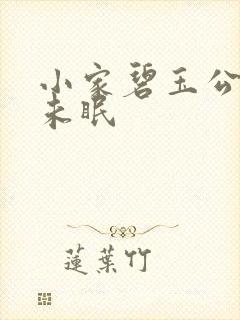 小家碧玉公
未眠
蓮葉竹